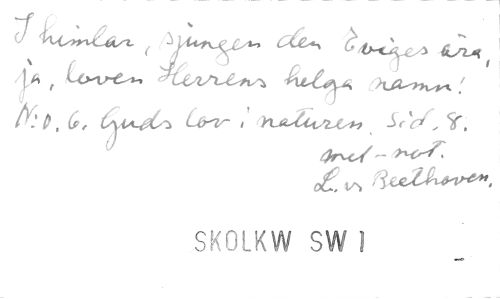 I himlar, sjungen den Eviges ära,
ja, loven Herrens helga namn!
N:o. 6. Guds lov i naturen. Sid. 8.
mel-not.
L. v. Beethoven.
SKOLKW SW 1